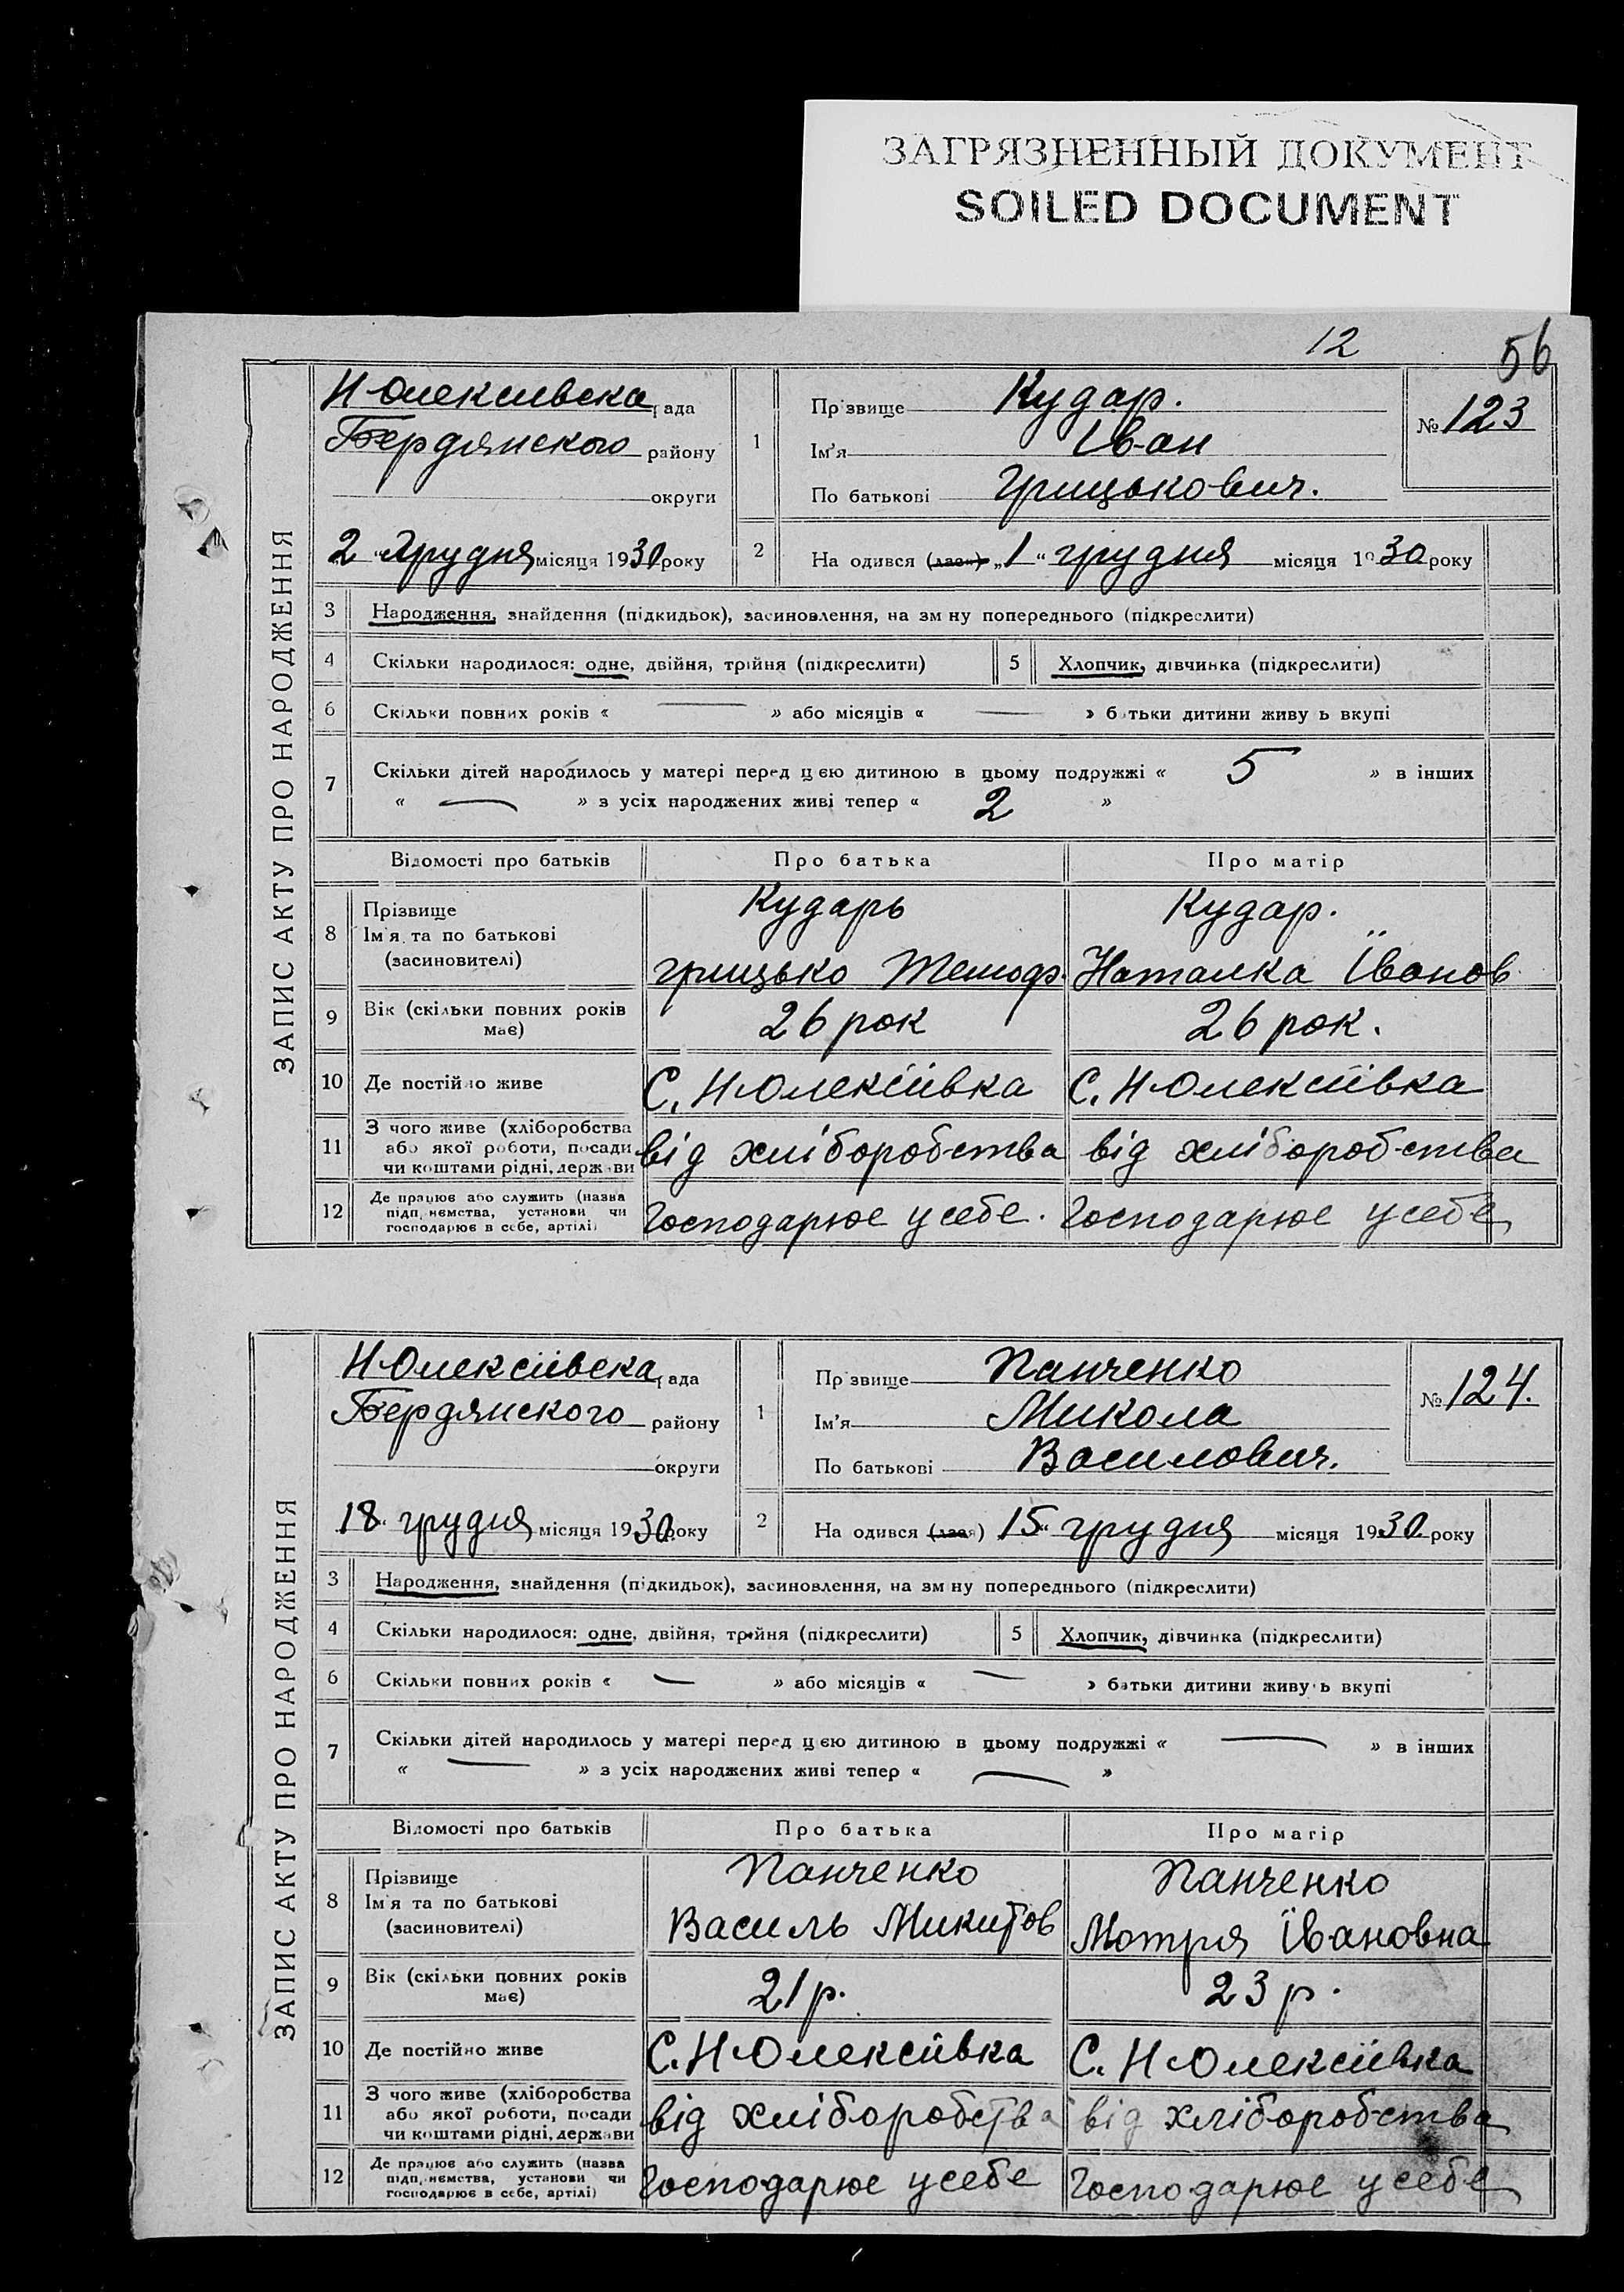 ЗАГРЯЗНЕННЫЙ ДОКУМЕНТ
SOILED DOCUMENT
12
56
ЗАПИС АКТУ ПРО НАРОДЖЕННЯ
Н Олексиївска рада
Бердянського району
округи
2 "Грудня місяця 1930 року
1
Прізвище Кудар.
Ім'я Іван
По батькові Грицькович.
№ 123
2
На одився (лася) „1“ грудня місяця 1930 року
3 Народження, знайдення (підкидьок), засиновлення, на зм ну попереднього (підкреслити)
4 Скільки народилося: одне, двійня, трійня (підкреслити) 5 Хлопчик, дівчинка (підкреслити)
6 Скільки повних років « — » або місяців « — » батьки дитини живу ь вкупі
7 Скільки дітей народилось у матері перед цією дитиною в цьому подружжі « 5 » в інших
« — » з усіх народжених живі тепер « 2 »
Відомості про батьків Про батька Про матір
8 Прізвище Кударь Кудар.
Ім'я та по батькові
(засиновителі) Грицько Наталка Іванов
9 Вік (скільки повних років має) 26 рок 26 рок.
10 Де постійно живе С. Н Олексіївка С. Н Олексіївка
11 З чого живе (хліборобства
або якої роботи, посади
чи коштами рідні, держави від хліборобства від хліборобства
12 Де працює або служить (назва
підп. ємства, установи чи
господарює в себе, артілі) Господарює у себе. Господарює у себе
ЗАПИС АКТУ ПРО НАРОДЖЕННЯ
Н Олексіївска рада
Бердянского району
округи
18 " грудня місяця 1930 року
1
Прізвище Панченко
Ім'я Микола
По батькові Василович.
№ 124.
2
На одився (лася) 15 “ грудня місяця 1930 року
3 Народження, знайдення (підкидьок), засиновлення, на зм ну попереднього (підкреслити)
4 Скільки народилося: одне, двійня, трійня (підкреслити) 5 Хлопчик, дівчинка (підкреслити)
6 Скільки повних років « — » або місяців « — » батьки дитини живу ь вкупі
7 Скільки дітей народилось у матері перед цією дитиною в цьому подружжі « — » в інших
« — » з усіх народжених живі тепер « — »
Відомості про батьків Про батька Про матір
8 Прізвище Панченко Панченко
Ім'я та по батькові
(засиновителі) Василь Микитов Мотря Івановна
9 Вік (скільки повних років має) 21 р. 23 р.
10 Де постійно живе С. Н Олексіївка С. Н Олексіївка
11 З чого живе (хліборобства
або якої роботи, посади
чи коштами рідні, держави від хліборобства від хліборобства
12 Де працює або служить (назва
підп. ємства, установи чи
господарює в себе, артілі) Господарює у себе Господарює у себе